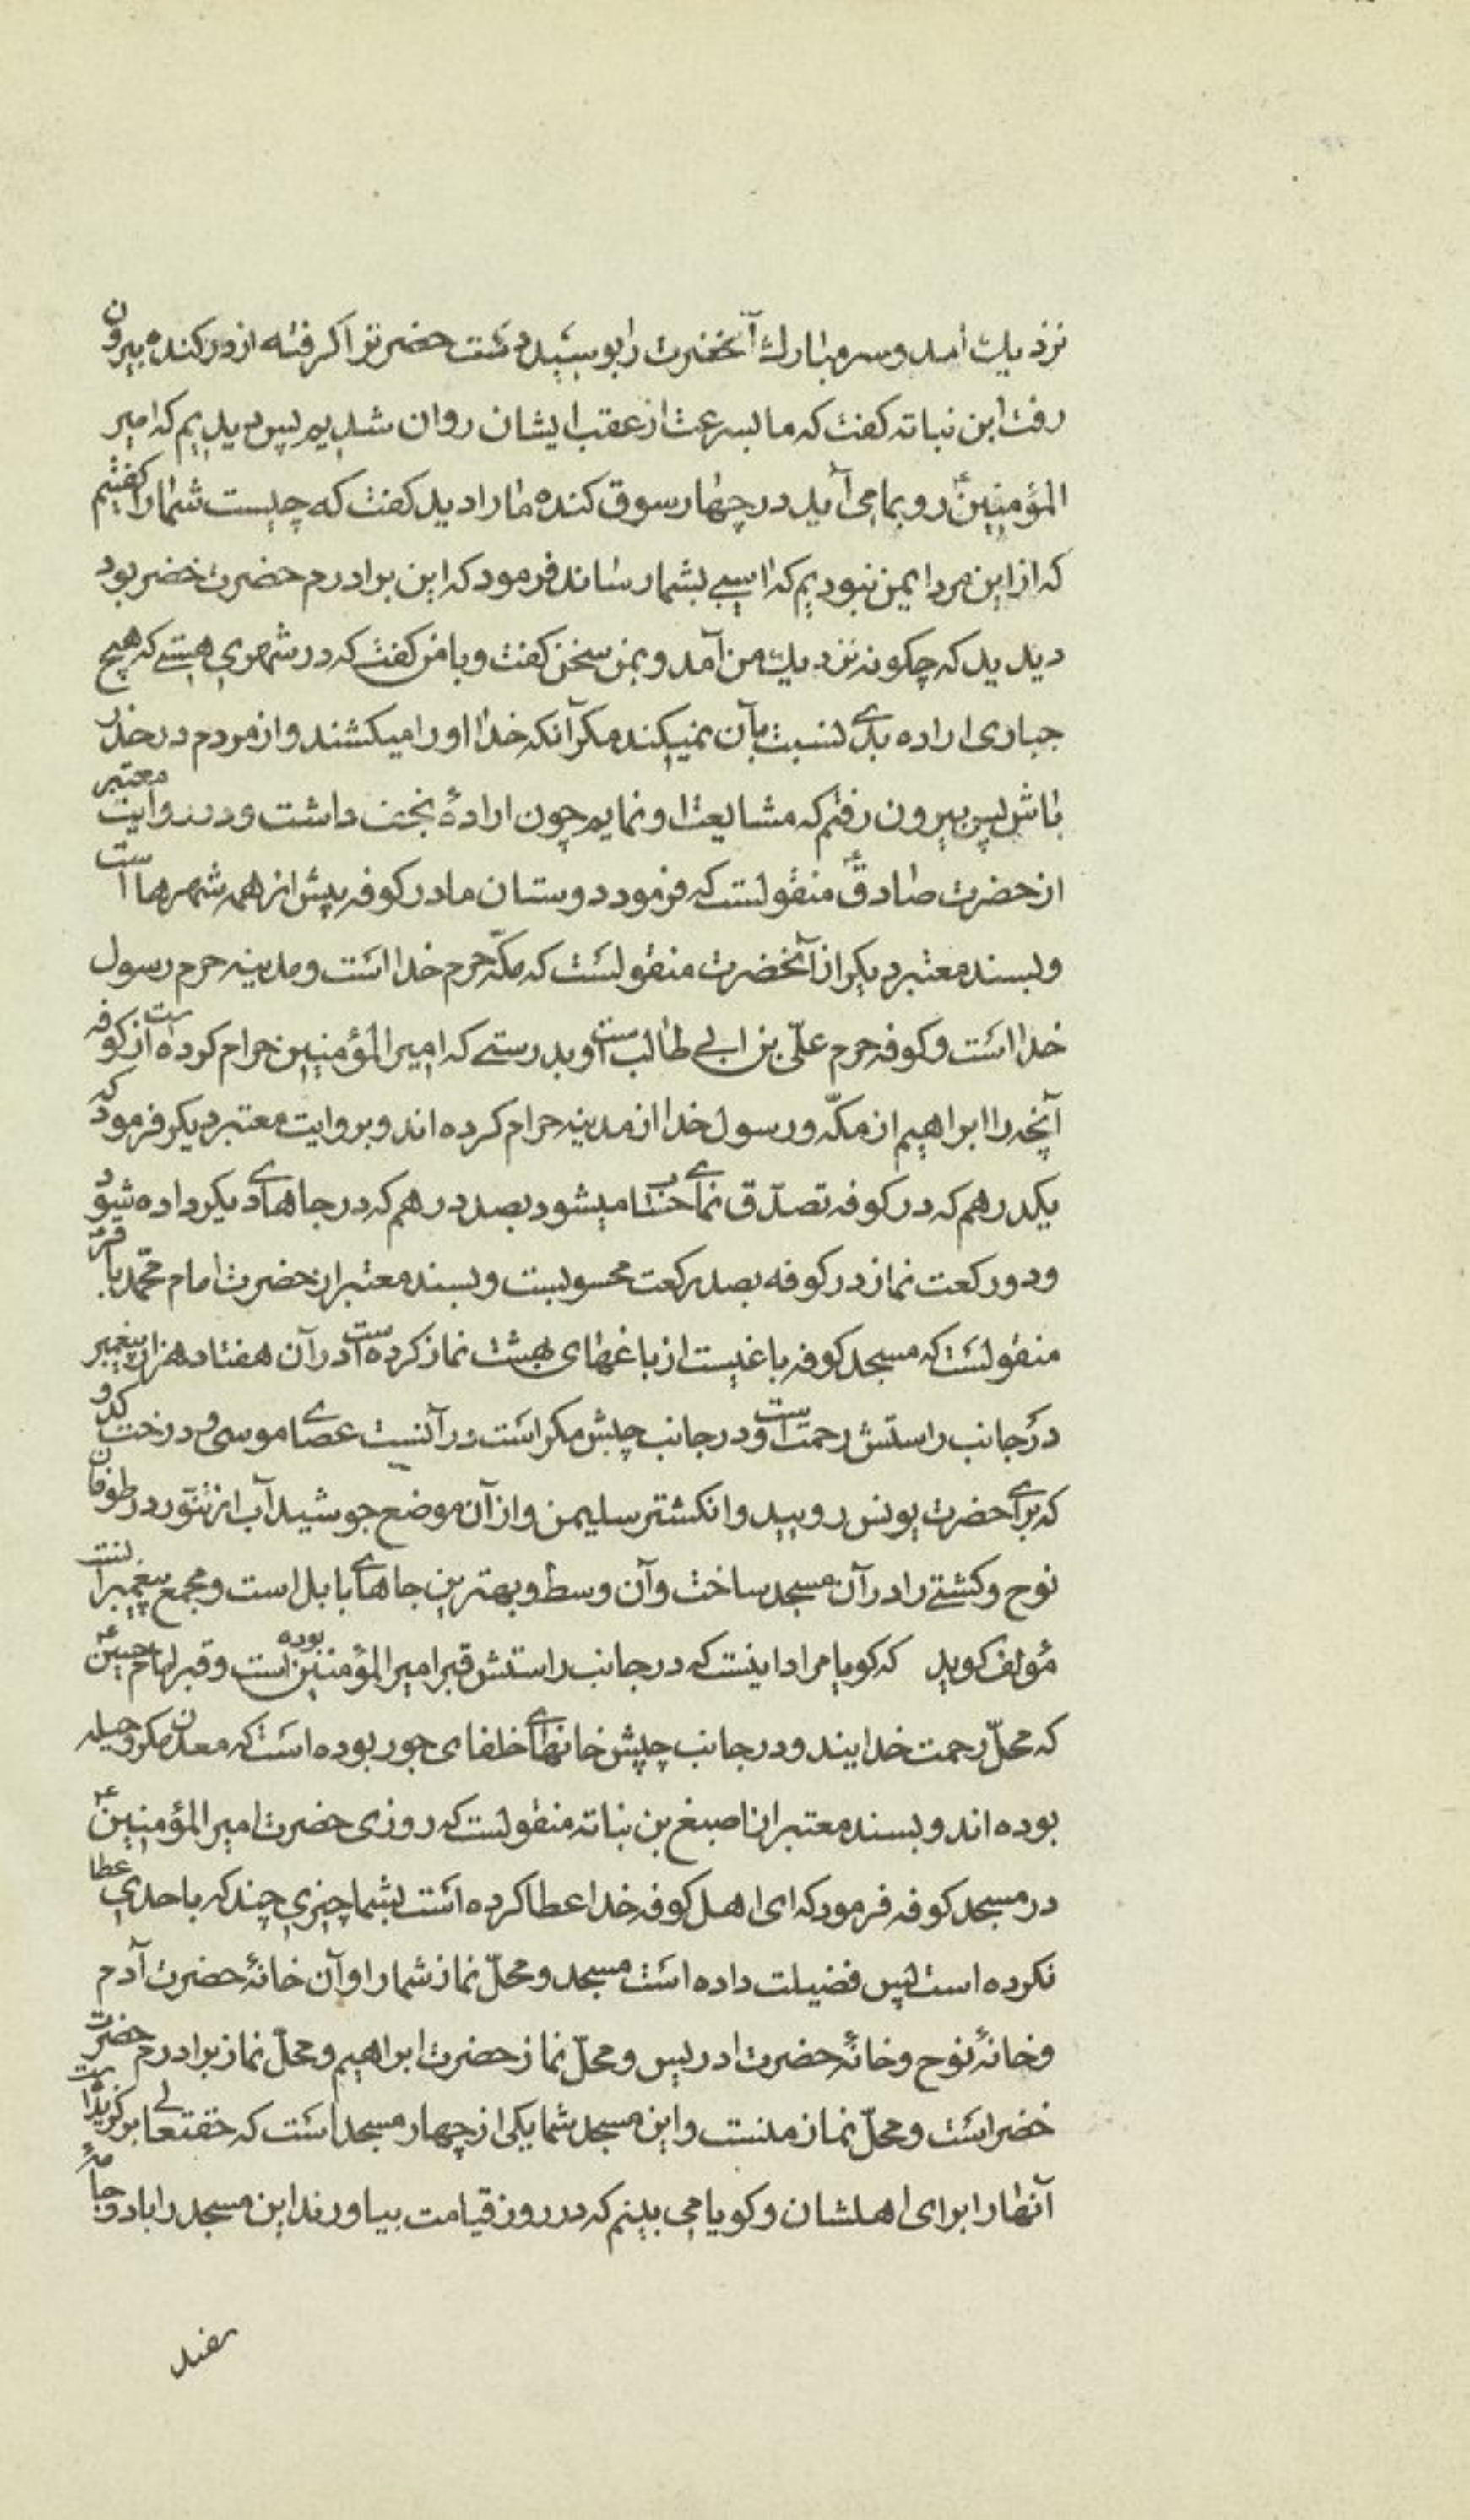 نزدیك آمد و سر مبارك آنحضرت را بوسید دست حضرتر اکرفته از در کنده بیرون
رفت ابن نباته کفت که ما بسرعت از عقب ایشان روان شدیم پس دیدیم که امیر
المؤمنینؑ رو بما می آید در چهار سوق کنده ما را دید کفت که چیست شما را کفتیم
که از این مرد ایمن نبودیم که اسیبی بشما رساند فرمود که این برادرم حضرت خضر بود
دیدید که چکونه نزدیك من آمد و بمن سخن کفت و با من کفت که در شهری هستی که هیچ
جباری اراده بدی نسبت بآن نمیکند مکر آنکه خدا او را میکشند و از مردم در حذر
باش پس بیرون رفتم که مشایعت او نمایم چون ارادهٔ نجف داشت و در روایت معتبر
از حضرت صادقؑ منقولست که فرمود دوستان ما در کوفه بیش از همه شهرها است
و بسند معتبر دیکر از آنحضرت منقولست که مکّه حرم خدا است و مدینه حرم رسول
خدا است و کوفه حرم علّی بن ابی طالب است و بدرستی که امیر المؤمنین حرام کرده است از کوفه
آنچه را ابراهیم از مکّه و رسول خدا از مدینه حرام کرده اند و بروایت معتبر دیکر فرمود که
یکدرهم که در کوفه تصدّق نمای حساب میشود بصد درهم که در جاهای دیکر داده شود
و دو رکعت نماز در کوفه بصد رکعت محسوبست و بسند معتبر از حضرت امام محمّد باقرؑ
منقولست که مسجد کوفه باغیست از باغهای بهشت نماز کرده است در آن هفتاد هزار پیغمبر
در جانب راستش رحمت است و در جانب چپش مکر است در آنست عصای موسی و درخت کدو
که برای حضرت یونس رویید و انکشتر سلیمن و از آن موضع جوشید آب از تنّور در طوفان
نوح و کشتی را در آن مسجد ساخت و آن وسط و بهترین جاهای بابل است و مجمع پیغمبرانست
مؤلف کوید که کویا مراد اینست که در جانب راستش قبر امیر المؤمنین بوده است و قبر امام حسینؑ
که محلّ رحمت خدایند و در جانب چپش خانهای خلفای جور بوده است که معدن مکر و حیله
بوده اند و بسند معتبر از اصبغ بن نباته منقولست که روزی حضرت امیر المؤمنینؑ
در مسجد کوفه فرمود که ای اهل کوفه خدا عطا کرده است بشما چیزی چند که باحدی عطا
نکرده است پس فضیلت داده است مسجد و محلّ نماز شما را و آن خانهٔ حضرت آدم
و خانهٔ نوح و خانهٔ حضرت ادریس و محلّ نماز حضرت ابراهیم و محلّ نماز برادرم حضرت
خضر است و محلّ نماز منست و این مسجد شما یکی از چهار مسجد است که حقتعالی برکزیده است
آنها را برای اهلشان و کویا می بینم که در روز قیامت بیاورند این مسجد را با دو جامهٔ
سفید